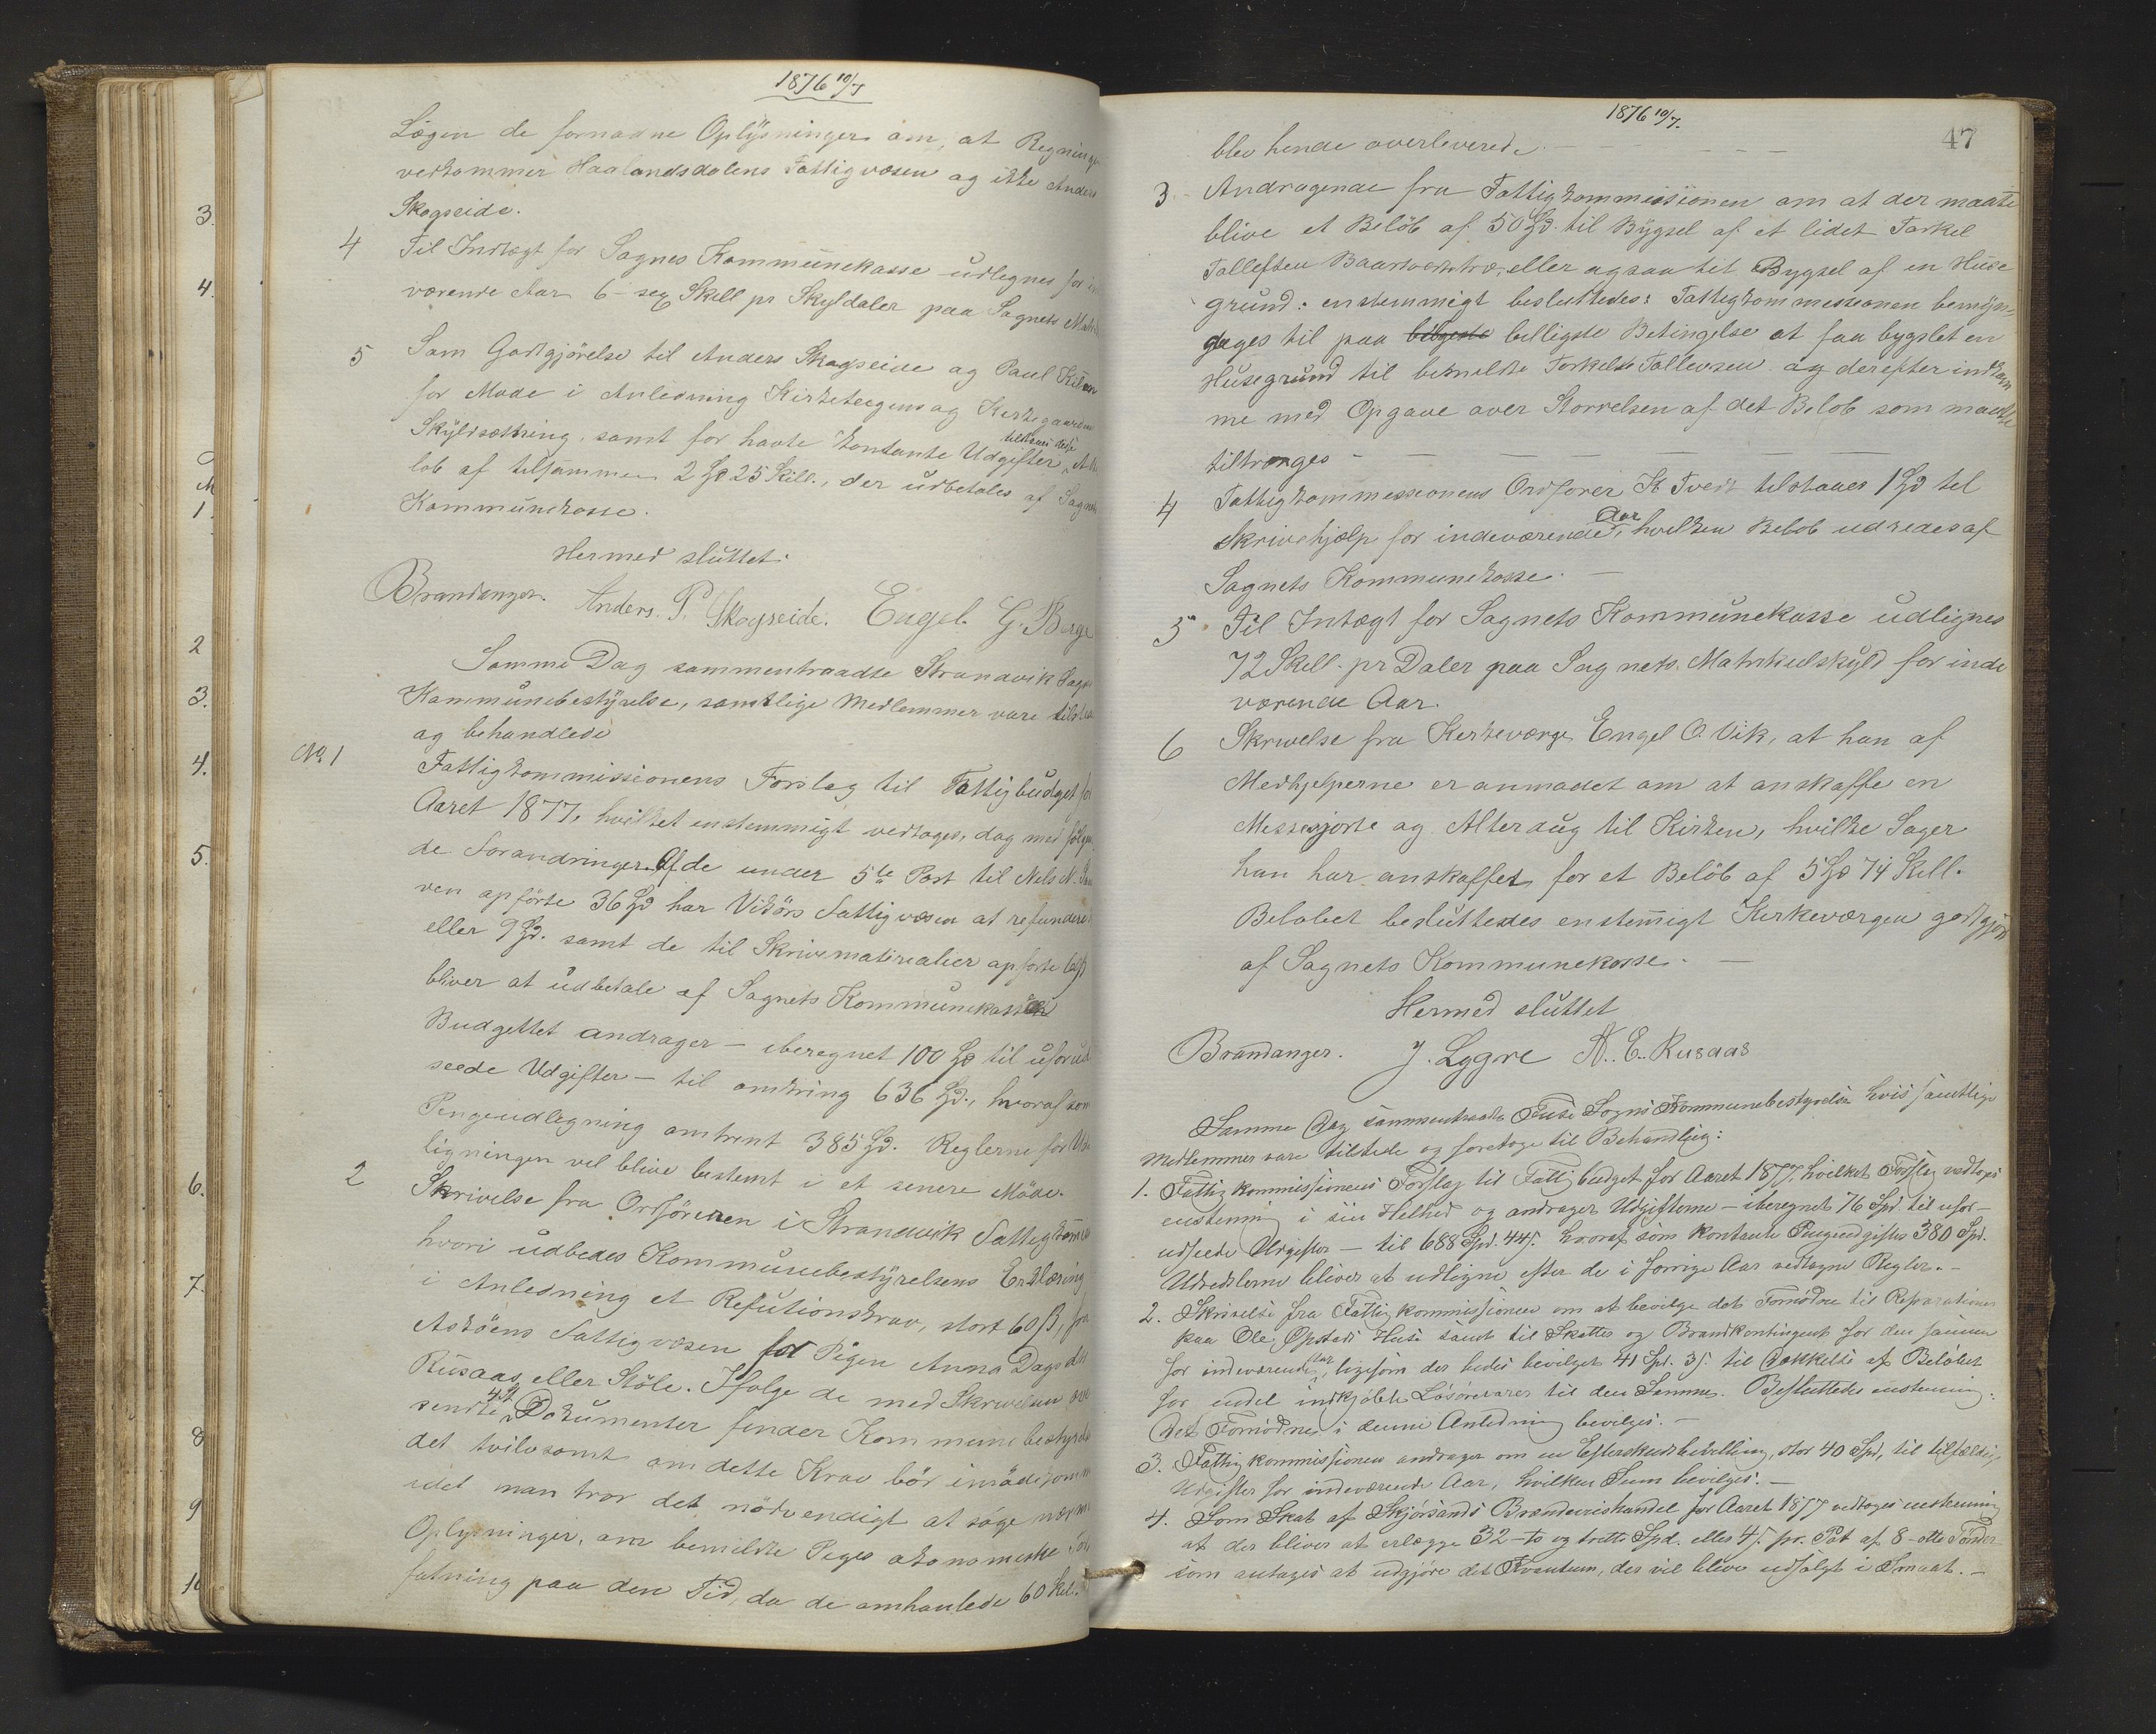 1876 10/7
Lægen de fornødne Oplysninger om, at Regninge
vedkommer Haalandsdalens Fattigvæsen og ikke Anders
Skogseide.
4 Til Indtægt for Sognes Kommunekasse udlignes for in
værende Aar 6 - sex Skill pr Skyldaler paa Sognets Matr
5 Som Godtgjörelse til Anders Skogseide og Paul
for Møde i Anledning Kirketeigens og Kirkegaardens
Skyldsætning, samt for havte kontante Udgifter, tilstaaes disse
löb af tilsammen 2 Spd 25 Skill., der udbetales af Sognets
Kommunekasse.
Hermed sluttet.
Brandanger. Anders. P. Skogseide. Engel. G. Berge
Samme Dag sammentraadte Strandvik Sogns
Kommunebestyrelse, samtlige Medlemmer vare tilstede
og behandlede
No 1 Fattigkommissionens Forslag til Fattigbudget for
Aaret 1877, hvilket enstemmigt vedtoges, dog med følgen
de Forandringer. Af de under 5te Post til Nels N.
ven opförte 36 Spd har Vikörs Fattigvæsen at refundere
eller 9 Spd. samt de til Skrivematerialier opførte
bliver at udbetale af Sognets Kommunekasse
Budgettet andrager - iberegnet 100 Spd til uforud
seede Udgifter - til omkring 636 Spd., hvoraf som
Pengeudlegning omtrent 385 Spd. Reglerne for Ud
ligningen vil blive bestemt i et senere Möde.
2 Skrivelse fra Ordföreren i Strandvik Fattigkom
hvori udbedes Kommunebestyrelsens Erklæring
i Anledning et Refutionskrav, stort 60 ß, fra
Asköens Fattigvæsen for Pigen Anna Dagsdtr
Rusaas eller Stöle. Ifølge de med Skrivelsen ove
sendte 4 St Dokumenter finder Kommunebestyrels
det tvilvsomt om dette Krav bör imödekomm
idet man tror det nödvendigt at söge nærme
Oplysninger, om bemeldte Piges økonomiske For
fatning paa den Tid, da de omhanlede 60 Skil.
3.
4.
1
2
3.
4.
5.
6.
7.
8
9
10
1876 10/7.
47
blev hende overleverede.
3 Andragende fra Fattigkommissionen om at der maatte
blive et Belöb af 50 Spd. til Bygsel af et lidet Torkel
Tollefsen eller ogsaa til Bygsel af en Huse
grund: enstemmigt besluttedes: Fattigkommissionen bemyn-
diges til paa billigste Betingelse at faa bygslet en
Husegrund til bemeldte Torkels Tollevsen og derefter indkom
me med Opgave over Størrelsen af det Beløb som maatte
tiltrænges
4 Fattigkommessionens Ordfører Tvedt tilstaaes 1 Spd til
Skrivehjælp for indeværende Aar, hvilken Beløb udredes af
Sognets Kommunekasse.
5 Til Intægt for Sognets Kommunekasse udlignes
72 Skill. pr Daler paa Sognets Matrikulskyld for inde
værende Aar.
6 Skrivelse fra Kirkeværge Engel O. Vik, at han af
Medhjelperne er anmodet om at anskaffe en
Messesjorte og Alterdug til Kirken, hvilke Sager
han har anskaffet for et Belöb af 5 Spd 74 Skill.
Beløbet besluttedes enstemigt Kirkeværgen godtgjör
af Sognets Kommunekasse.
Hermed sluttet
Brandanger. J. Lygre N. E. Rusaas
Samme Dag sammentraadte Fuse Sogns Kommunebestyrelse hvis samtlige
Medlemmer vare tilstede og foretoges til Behandling:
1. Fattigkommissionens Forslag til Fattigbudget for Aaret 1877, hvilket Forslag vedtoges
enstemmig i sin Helhed og andrager Udgifterne - iberegnet 76 Spd. til ufor-
udseede Udgifter - til 688 Spd. 44 s. hvoraf som kontante Pengeudgifter 380 Spd.
Udredslerne bliver at udligne efter de i forrige Aar vedtagne Regler. -
2. Skrivelse fra Fattigkommissionen om at bevilge det Fornødne til Reparationer
paa Ole Opstads Huse samt til Skatter og Brandkontingent for den samme
for indeværende Aar, ligesom der bedes bevilget 41 Spd. 3 s. til Dækkelse af Beløbet
for endel indkjøbte Løsørevarer til den Samme. Besluttedes enstemmig:
Det Fornødne i denne Anledning bevilges. -
3. Fattigkommissionen andrager om en Efterskudsbevilling, stor 40 Spd, til tilfældige
Udgifter for indeværende Aar, hvilken Sum bevilges. -
4. Som Skat af Skjørsands Brændevinshandel for Aaret 1877 vedtoges enstemmig
at der bliver at erlægge 32 - to og tretti Spd. eller 4 s. pr. Pot af 8 - otte Tønder
som antages at udgjøre det Kvantum, der vil blive udsalgt i Smaat. -